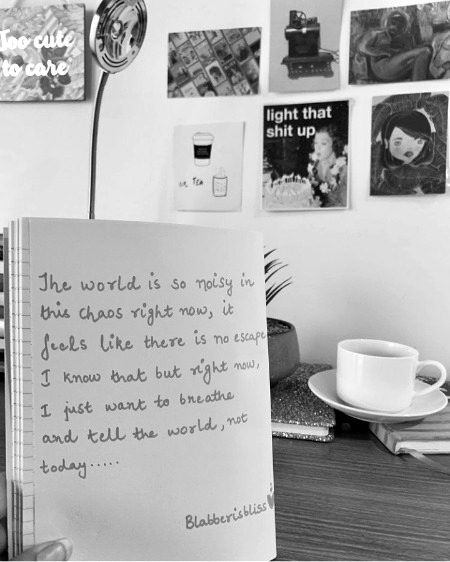 Too cute
to care
light that
shit up
or TEA
The world is so noisy in
this chaos right now, it
feels like there is no escape
I know that but right now,
I just want to breathe
and tell the world, not
today.....
Blabberisbliss